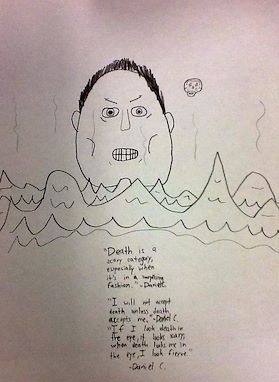 "Death is a
scary category,
especially when
it's in a surprising
fashion." -Daniel C.
"I will not accept
death unless death
accepts me." -Daniel C.
"If I look death in
the eye, it looks scary,
when death looks me in
the eye, I look fierce."
-Daniel C.